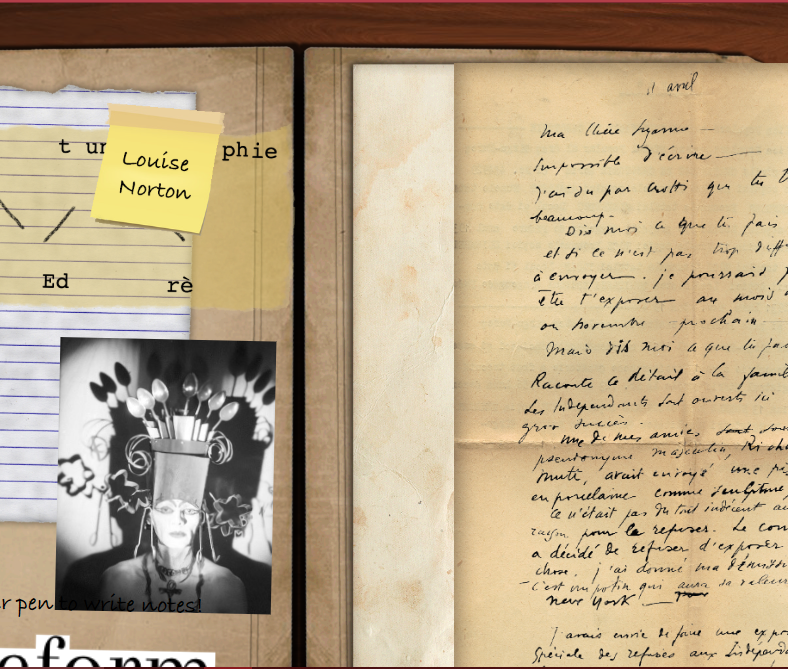 t un
phie
Louise
Norton
Ed
rè
r pen to write notes!
eform
11 avril
ma chère Suzanne —
Impossible d'écrire —
J'ai su par Crotti que tu t
beaucoup.
Dis moi ce que tu fais
et si ce n'est pas trop diffi
à envoyer. je pourrais p
être t'exposer au mois
ou novembre prochain
Mais dis moi ce que tu fais
Raconte ce détail à la famil
Les Indépendants sont ouverts ici
gros succès.
Une de mes amies sous
pseudonyme masculin, Richa
Mutt, avait envoyé une pi
en porcelaine comme sculpture
Ce n'était pas du tout indécent au
raison pour la refuser. Le com
a décidé de refuser d'exposer
chose. j'ai donné ma démissi
c'est un potin qui aura sa valeur
New York —
J'avais envie de faire une expo
spéciale des refusés aux Indépenda